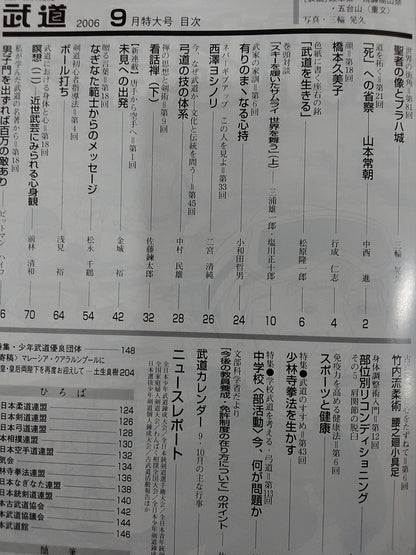 武道 2006 9月特大号 目次
・五台山（重文）
写真・三輪 晃久
世界の街角＝第81回
聖者の像とプラハ城
三輪
道を拓く＝第21回
「死」への省察 山本常朝
中西 進
2
顔＝第18回
橋本久美子
行成 仁志
4
色紙に書く座右の銘
「武道を生きる」
松原隆一郎
6
巻頭対談
「スキーを履いたサムライ 世界を舞う」（上）
三浦雄一郎・塩川正十郎
10
武家の家訓＝第6回
有りのまゝなる心持
小和田哲男
24
ネバーギブアップ この人を見よ＝第33回
西澤ヨシノリ
二宮 清純
26
今、なぜ武道か 文化と伝統を問う＝第45回
弓道の技の体系
中村 民雄
28
禅の思想と剣術＝第9回
看話禅（下）
佐藤錬太郎
32
〔新連載〕唐手から空手へ＝第1回
未見への出発
金城 裕
42
贈る言葉＝第18回
なぎなた範士からのメッセージ
松永 千鶴
54
剣道初心者指導法＝第4回
ボール打ち
浅見 裕
64
武道における身体と心＝第18回
瞑想（二） 近世武芸にみられる心身観
前林 清和
70
私が学んだ武道の名著から＝第18回
男子門を出ずれば百万の敵あり
竹内流柔術 勝之廻小具足
身体調整術入門＝第12回
部位別リコンディショニング
その5、肩関節の脱臼
免疫力を高める健康法＝第6回
スポーツと健康
特集●武道のすすめ＝第43回
少林寺拳法を生かす
特集●学校武道を考える・弓道＝第13回
中学校〈部活動〉今、何が問題か
文部科学省だより
「今後の教員養成・免許制度の在り方について」のポイント
武道カレンダー 9・10月の主な行事
ニュースレポート
特集・少年武道優良団体 148
寄稿〉マレーシア・クアラルンプールに
皇・皇后両陛下を再度お迎えして―土生良樹 204
ひろば
日本柔道連盟 124
日本剣道連盟 126
日本弓道連盟 128
本相撲連盟 130
日本空手道連盟 132
気会 134
林寺拳法連盟 136
日本なぎなた連盟 138
日本銃剣道連盟 140
本古武道協会 142
本武道協議会 144
本武道館 146
随筆